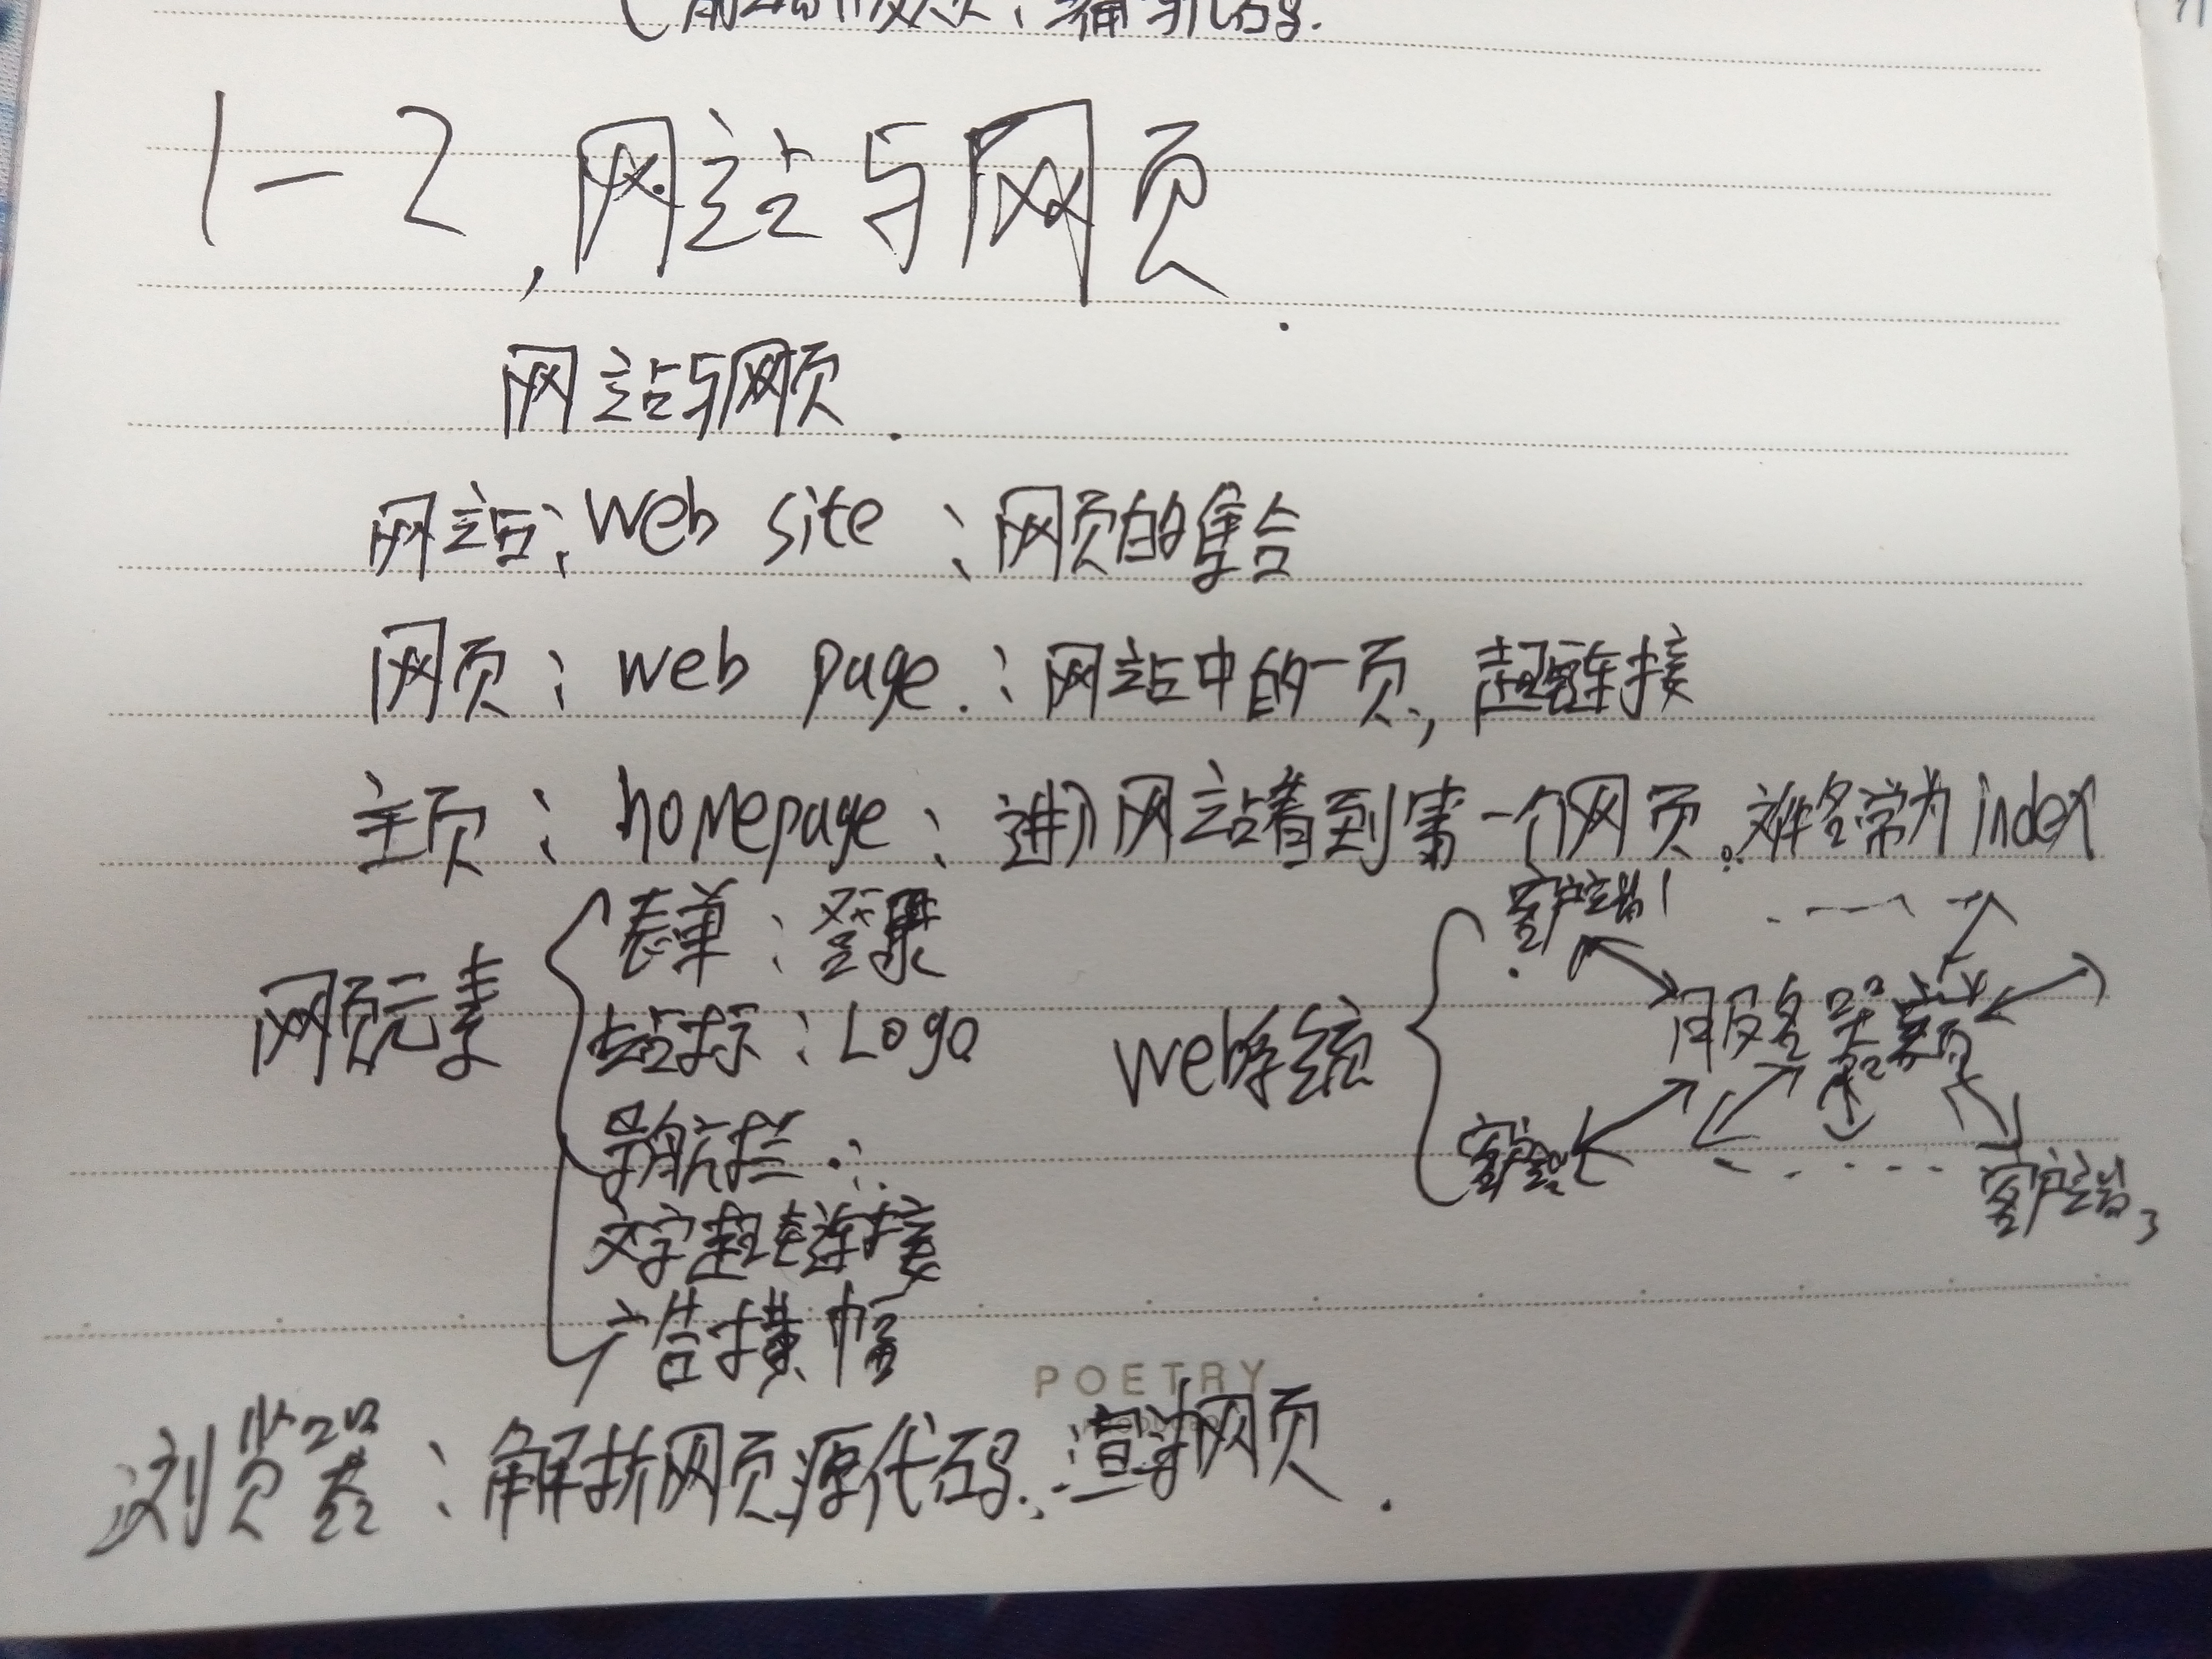 1-2,网站与网页.
网站与网页.
网站:Web site:网页的集合
网页:web page.:网站中的一页,超链接
主页:homepage:进入网站看到第一个网页。文件名常为index
网页元素
表单:登录
站标:Logo
导航栏:
文字超链接
广告横幅
web系统
客户端1
服务器端
客户端2
客户端3
POETRY
浏览器:解析网页源代码.渲染网页.